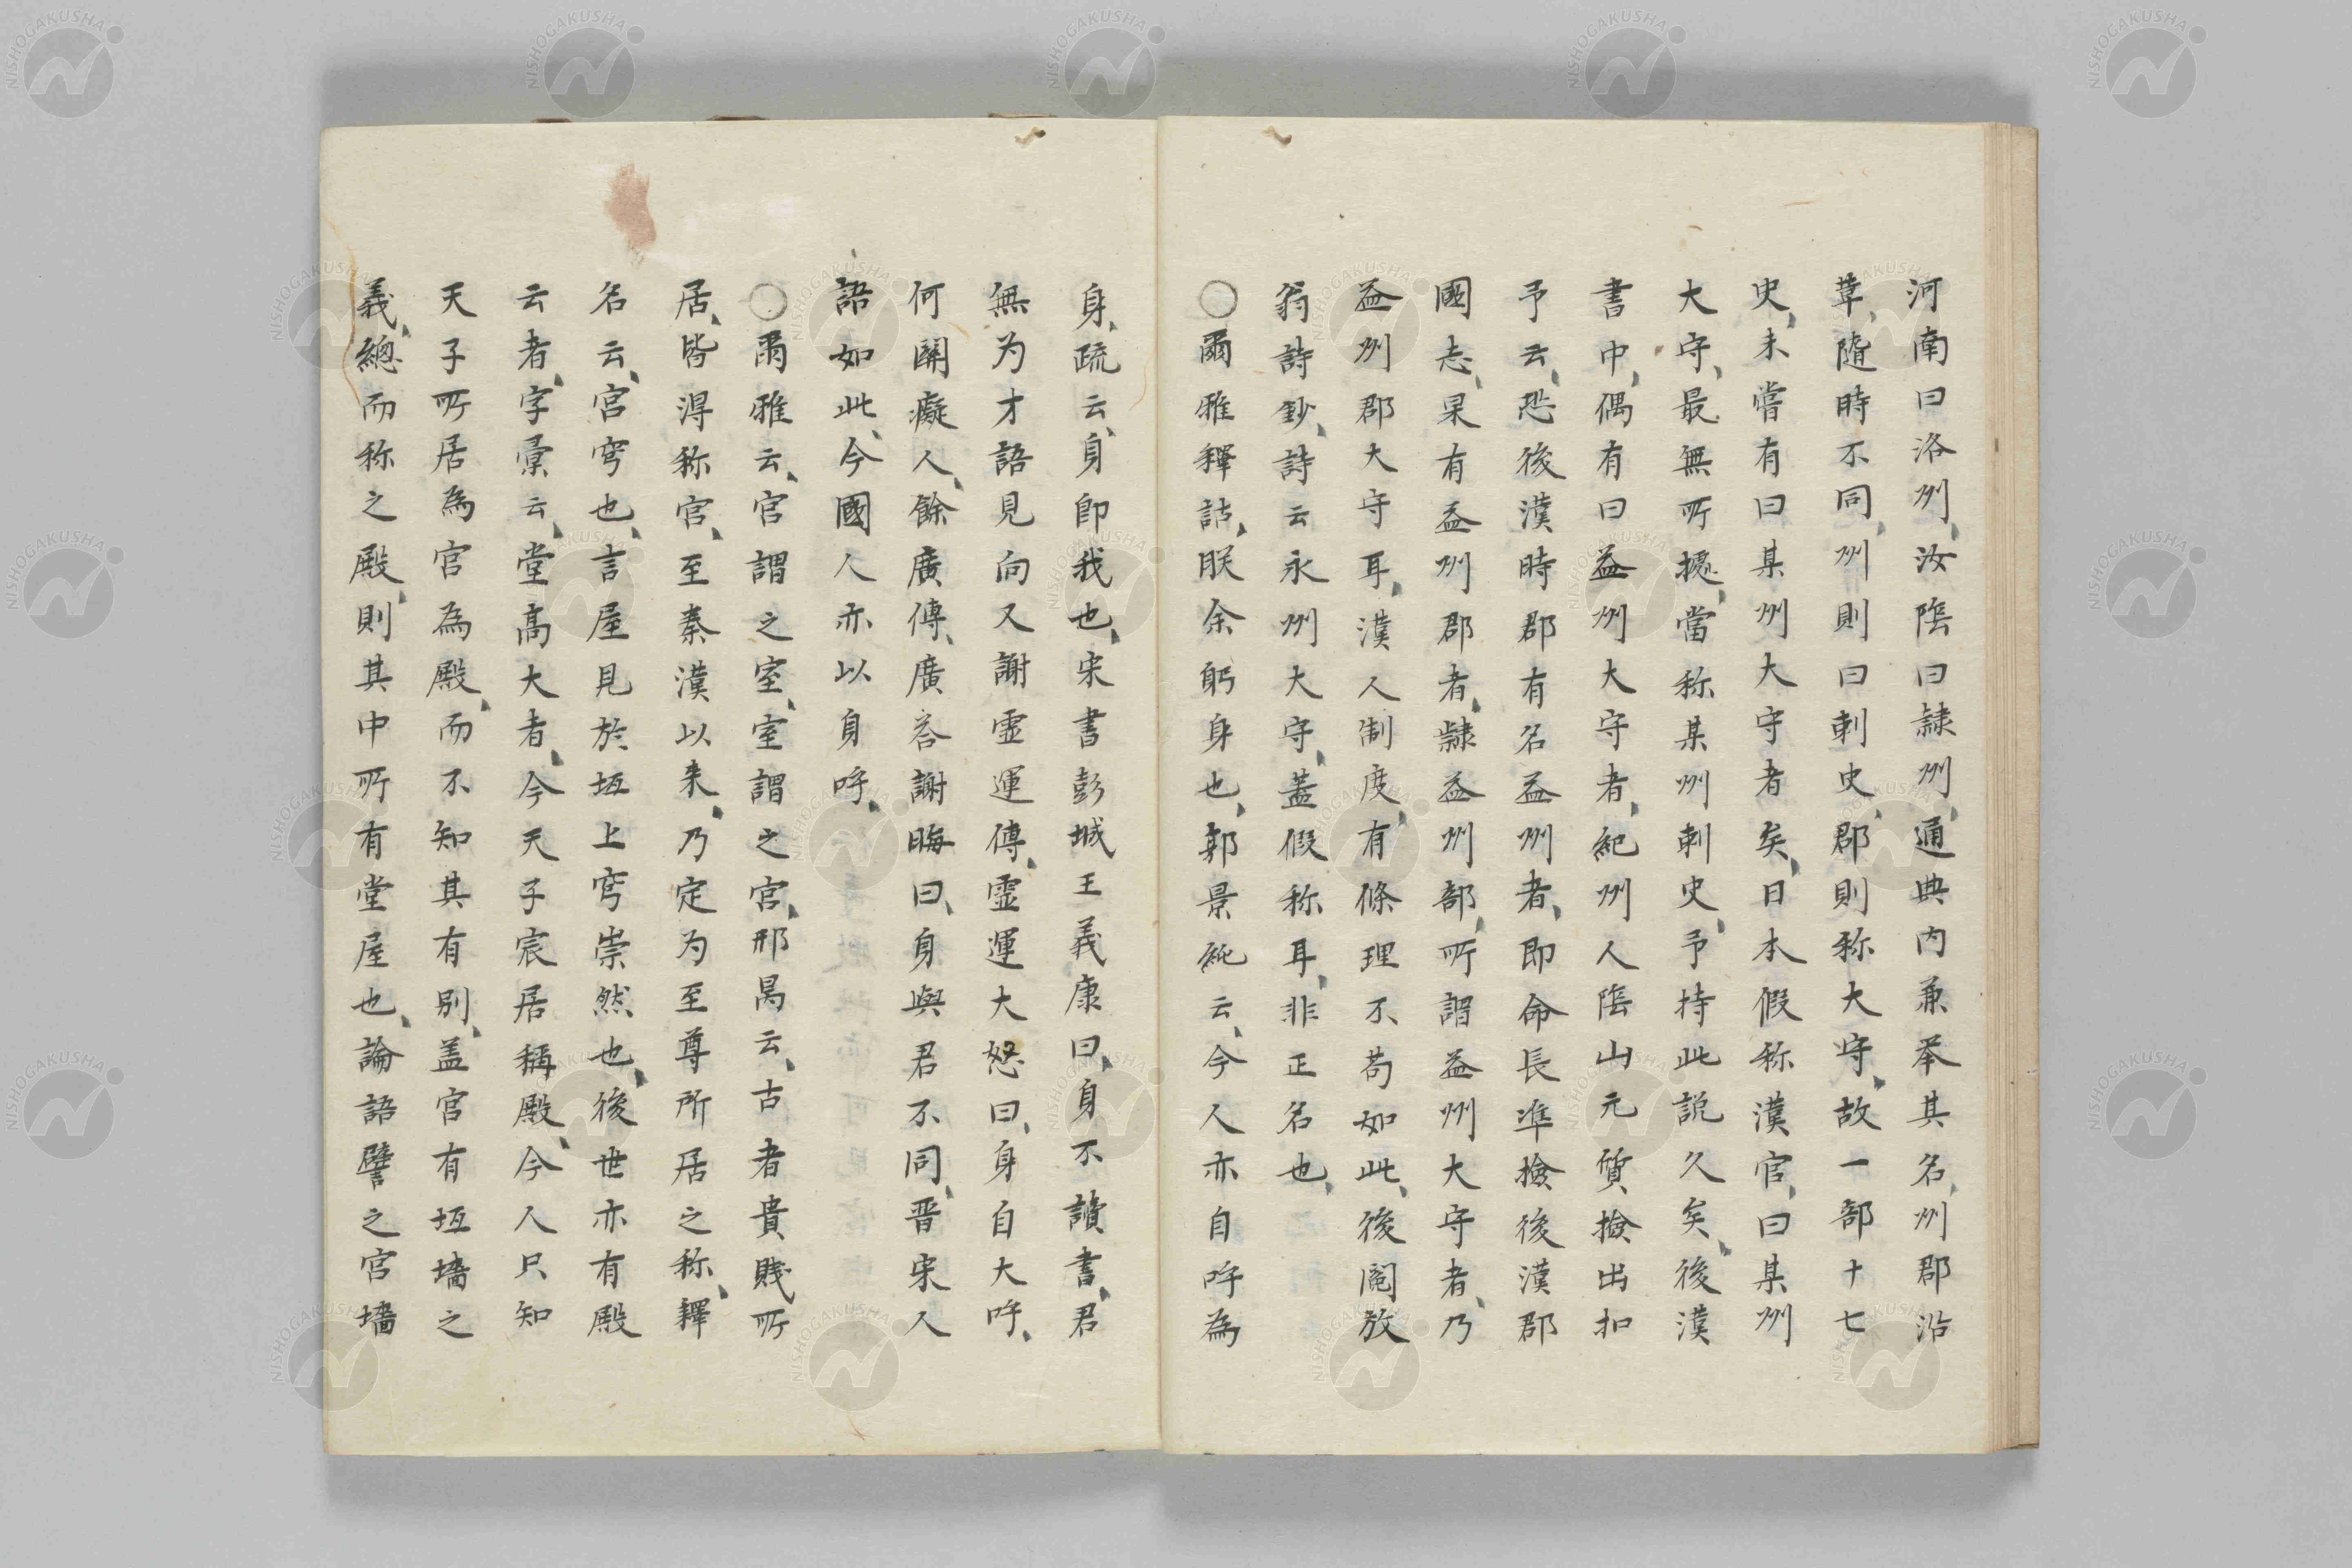 河南曰洛州、汝陰曰隷州、通典内兼举其名、州郡沿
革、隨時不同、州則曰刺史、郡則称大守、故一部十七
史、未嘗有曰某州大守者矣、日本假称漢官、曰某州
大守、最無所據、當称某州刺史、予持此説久矣、後漢
書中、偶有曰益州大守者、紀州人陰山元質撿出扣
予云、恐後漢時郡有名益州者、即命長凖撿後漢郡
國志、果有益州郡者、隷益州部、所謂益州大守者、乃
益州郡大守耳、漢人制度、有條理不苟如此、後閲放
翁詩鈔、詩云永州大守、蓋假称耳、非正名也、
○爾雅釋詁、朕余躬身也、郭景純云、今人亦自呼為
身、疏云、身即我也、宋書彭城王義康曰、身不讀書、君
無为才語見向又謝霊運傳、霊運大怒曰、身自大呼、
何關癡人、餘廣傳、廣答謝晦曰、身與君不同、晋宋人
語如此、今國人亦以身呼、
○爾雅云、宮謂之室、室謂之宮、邢昺云、古者貴賤所
居、皆得称宮、至秦漢以来、乃定为至尊所居之称、釋
名云、宮穹也、言屋見於垣上穹崇然也、後世亦有殿
云者、字彙云、堂高大者、今天子宸居稱殿、今人只知
天子所居為宮為殿、而不知其有別、盖宮有垣墻之
義、總而称之殿、則其中所有堂屋也、論語譬之宮墻